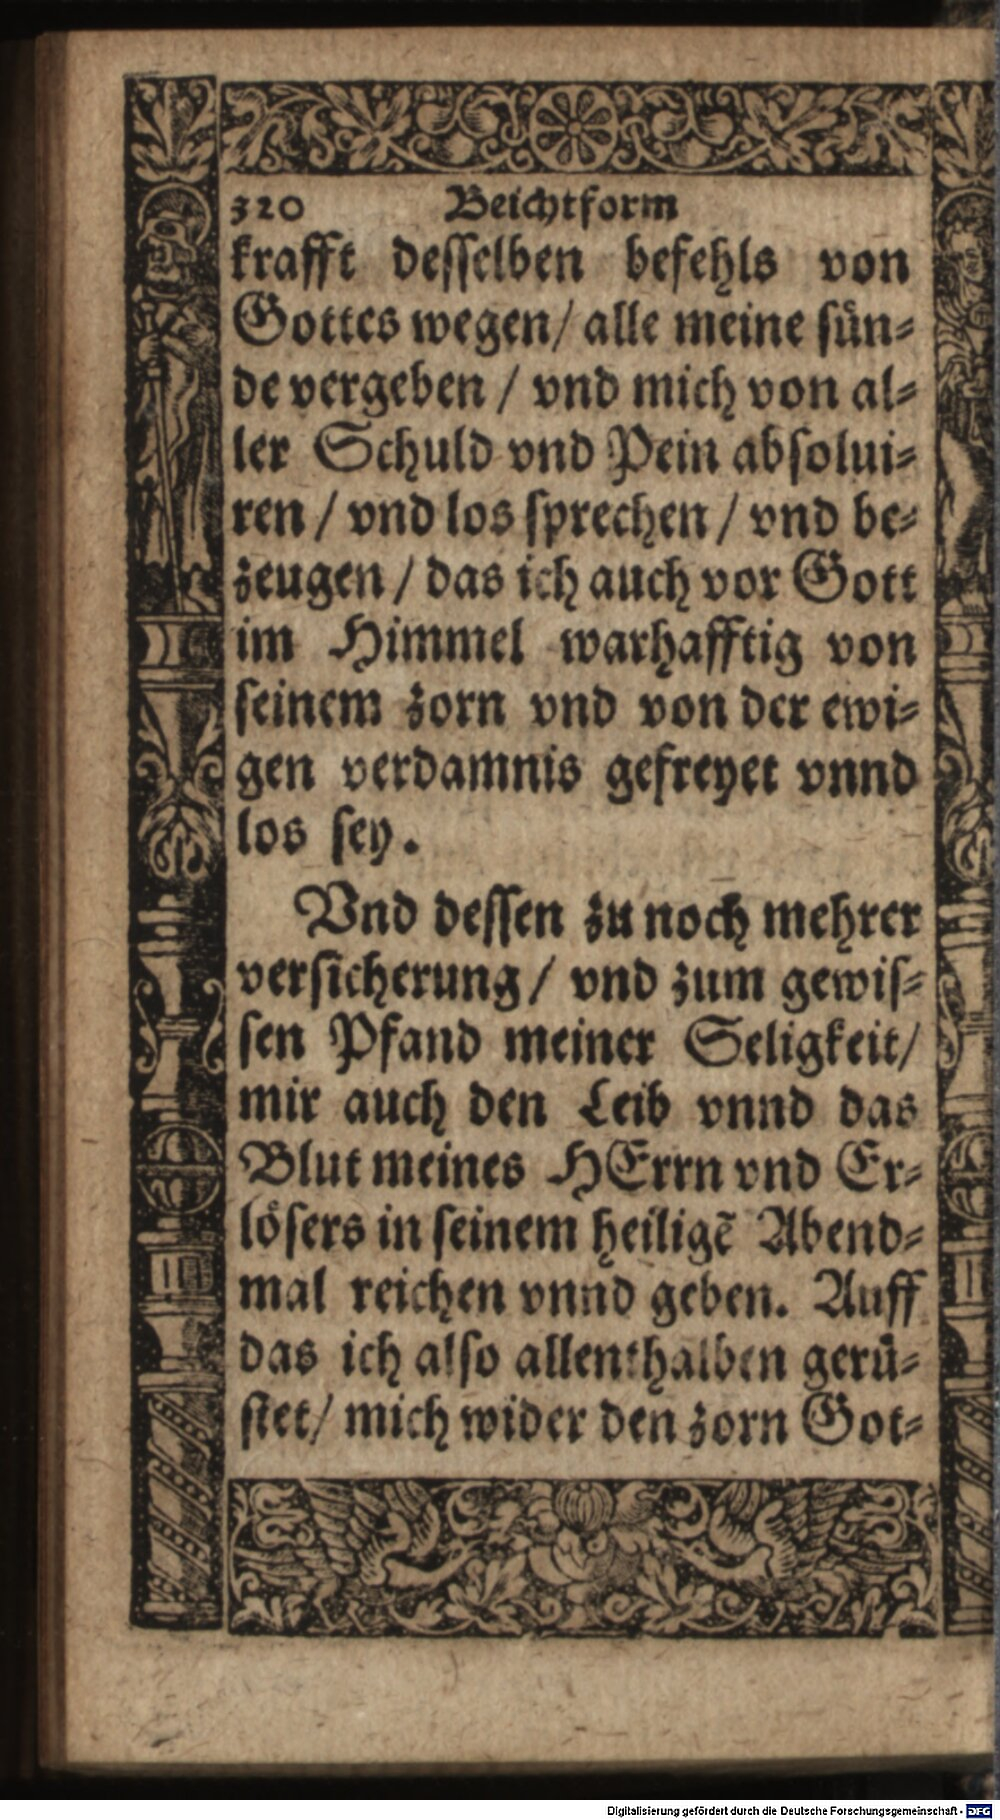 320 Beichtform
krafft desselben befehls von
Gottes wegen/ alle meine sün⸗
de vergeben / vnd mich von al⸗
ler Schuld vnd Pein absolui⸗
ren / vnd los sprechen / vnd be⸗
zeugen / das ich auch vor Gott
im Himmel warhafftig von
seinem zorn vnd von der ewi⸗
gen verdamnis gefreyet vnnd
los sey.
Vnd dessen zu noch mehrer
versicherung/ vnd zum gewis⸗
sen Pfand meiner Seligkeit/
mir auch den Leib vnnd das
Blut meines HErrn vnd Er⸗
lösers in seinem heiligẽ Abend⸗
mal reichen vnnd geben. Auff
das ich also allenthalben gerü⸗
stet/ mich wider den zorn Got⸗
Digitalisierung gefördert durch die Deutsche Forschungsgemeinschaft - DFG